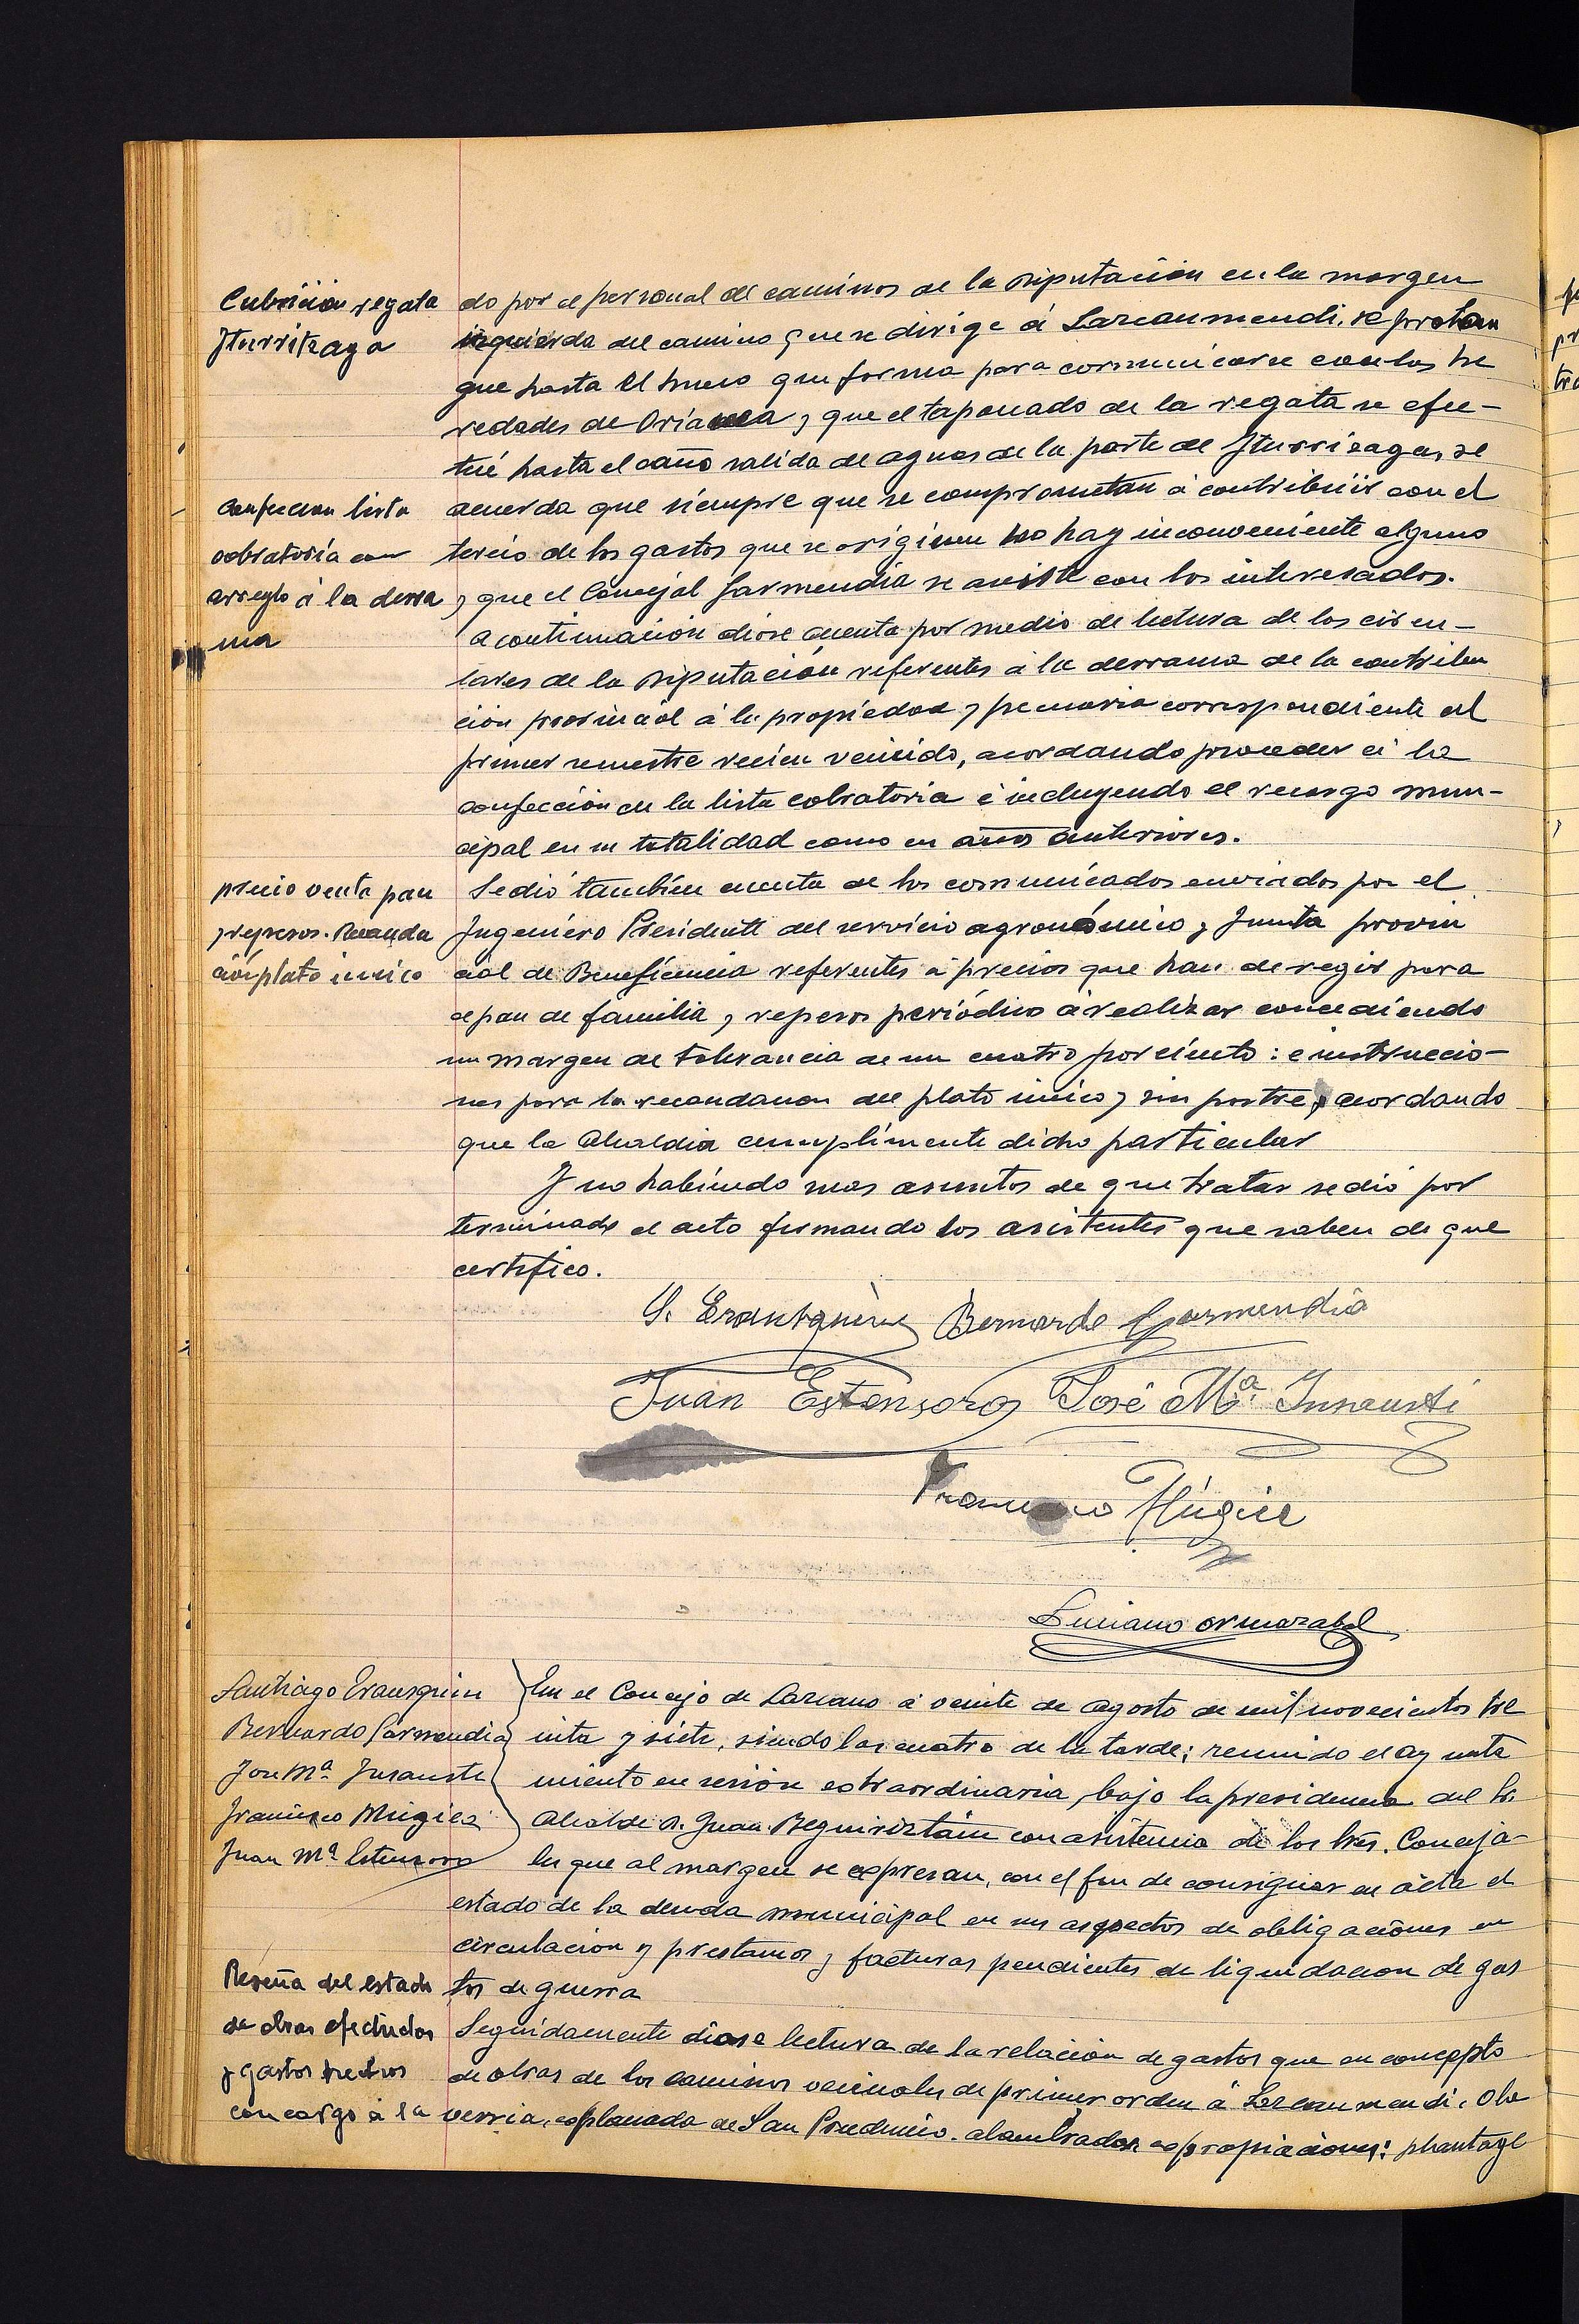 Cubrición regata
Iturritzaga
do por el personal de caminos de la Diputación en la margen
izquierda del camino que se dirige á Lazcaumendi, se prolon
gue hasta el hueco que forma para comunicarse con las he
redades de y que el taponado de la regata se efec-
túe hasta el caño salida de aguas de la parte de Iturrizaga, se
confeccion lista
cobratoria con
arreglo á la derra
ma
acuerda que siempre que se comprometan á contribuir con el
tercio de los gastos que se originen no hay inconveniente alguno
y que el Concejal Garmendia se aviste con los interesados.
A continuación dióse cuenta por medio de lectura de las circu-
lares de la Diputación referentes á la derrama de la contribu
ción provincial á la propiedad y pecuaria correspondiente al
primer semestre recien vencido, acordando proceder á la
confección de la lista cobratoria é incluyendo el recargo muni-
cipal en su totalidad como en años anteriores.
precio venta pan
y repesos. Recauda
ción plato único
Se dió también cuenta de los comunicados enviados por el
Ingeniero Presidente del servicio agronómico y Junta provin
cial de Beneficencia referentes á precios que han de regir para
el pan de familia y repesos periódicos á realizar concediendo
un margen de tolerancia de un cuatro por ciento: e instruccio-
nes para la recaudacion del plato único y sin postre, acordando
que la Alcaldia cumplimente dicho particular
Y no habiendo mas asuntos de que tratar se dió por
terminado el acto firmando los asistentes que saben de que
certifico.
S. Erausquin Bernardo Garmendia
Juan Estensoro José Mª. Insausti
Francisco Múgica
Luciano Ormazabal
Santiago Erausquin
Bernardo Garmendia
José Mª. Insausti
Francisco Mugica
Juan Mª Estensoro
En el Concejo de Lazcano á veinte de agosto de mil novecientos tre
inta y siete, siendo las cuatro de la tarde; reunido el ayunta
miento en sesión extraordinaria, bajo la presidencia del Sr.
Alcalde D. Juan Beguiristáin con asistencia de los Sres. Conceja-
les que al margen se expresan, con el fin de consignar en acta el
estado de la deuda municipal en sus aspectos de obligaciones en
circulacion y prestamos y facturas pendientes de liquidacion de gas
tos de guerra
Reseña del estado
de obras efectuadas
y gastos hechos
con cargo á la
Seguidamente dióse lectura de la relación de gastos que en conceppto
de obras de los caminos vecinales de primer orden á Lazcaumendi, Ola
verria, explanada de San Prudencio. alambradas expropiaciones: phantage